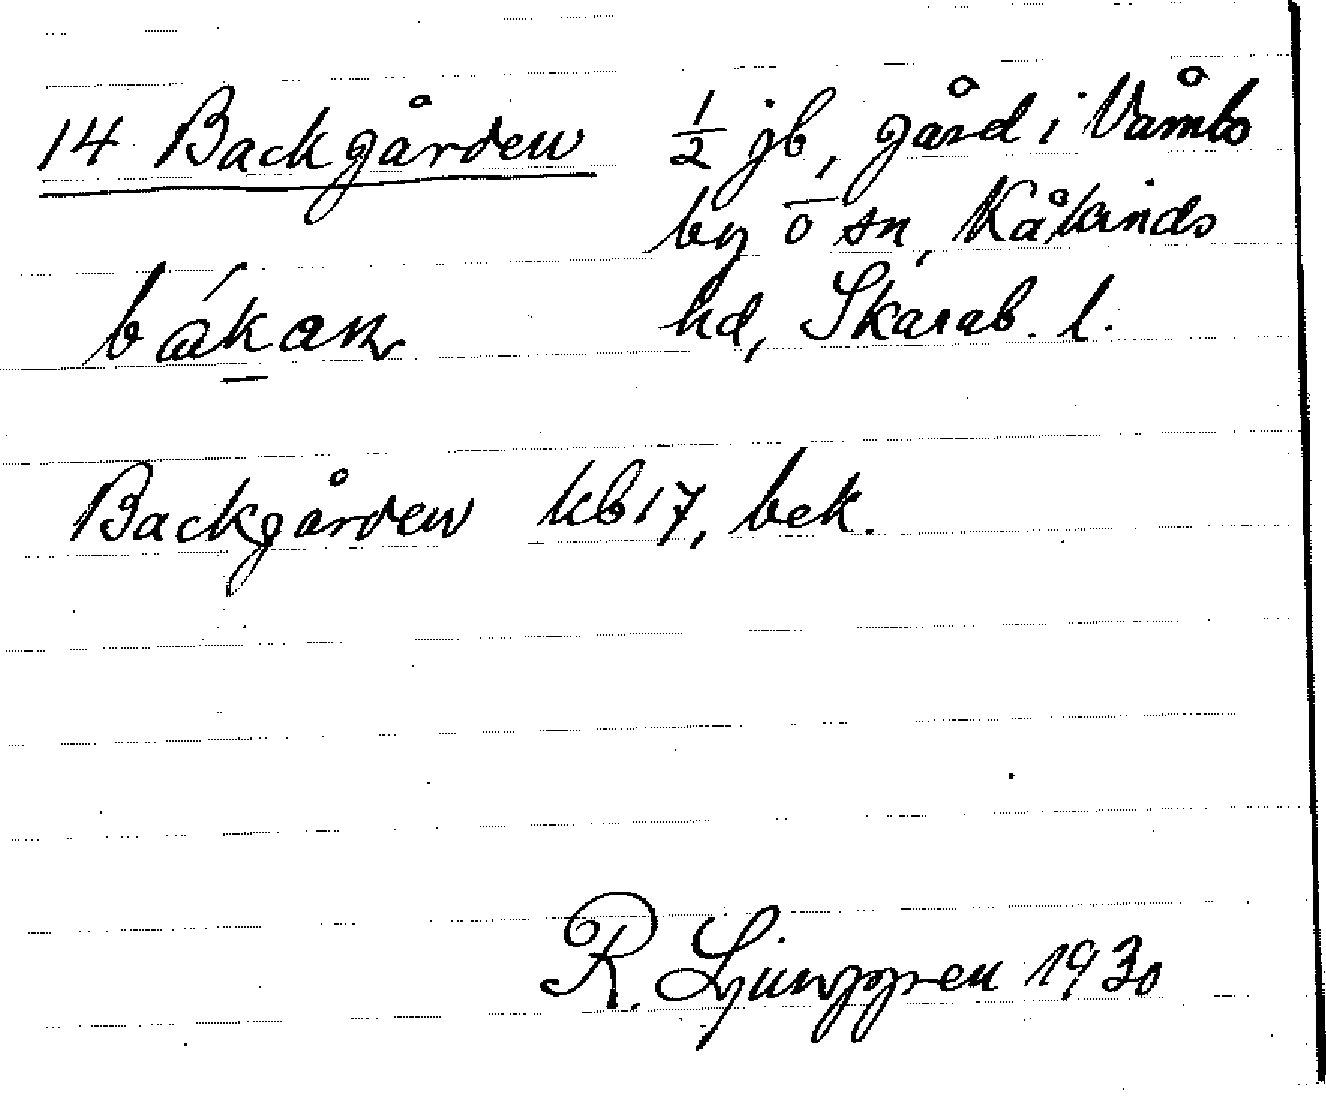 14 Backgården
1/2 jb, gård i Våmbs
by o sn, Kåkinds
hd, Skarab. l.
Backgården kb 17, bek.
R. Ljunggren 1930